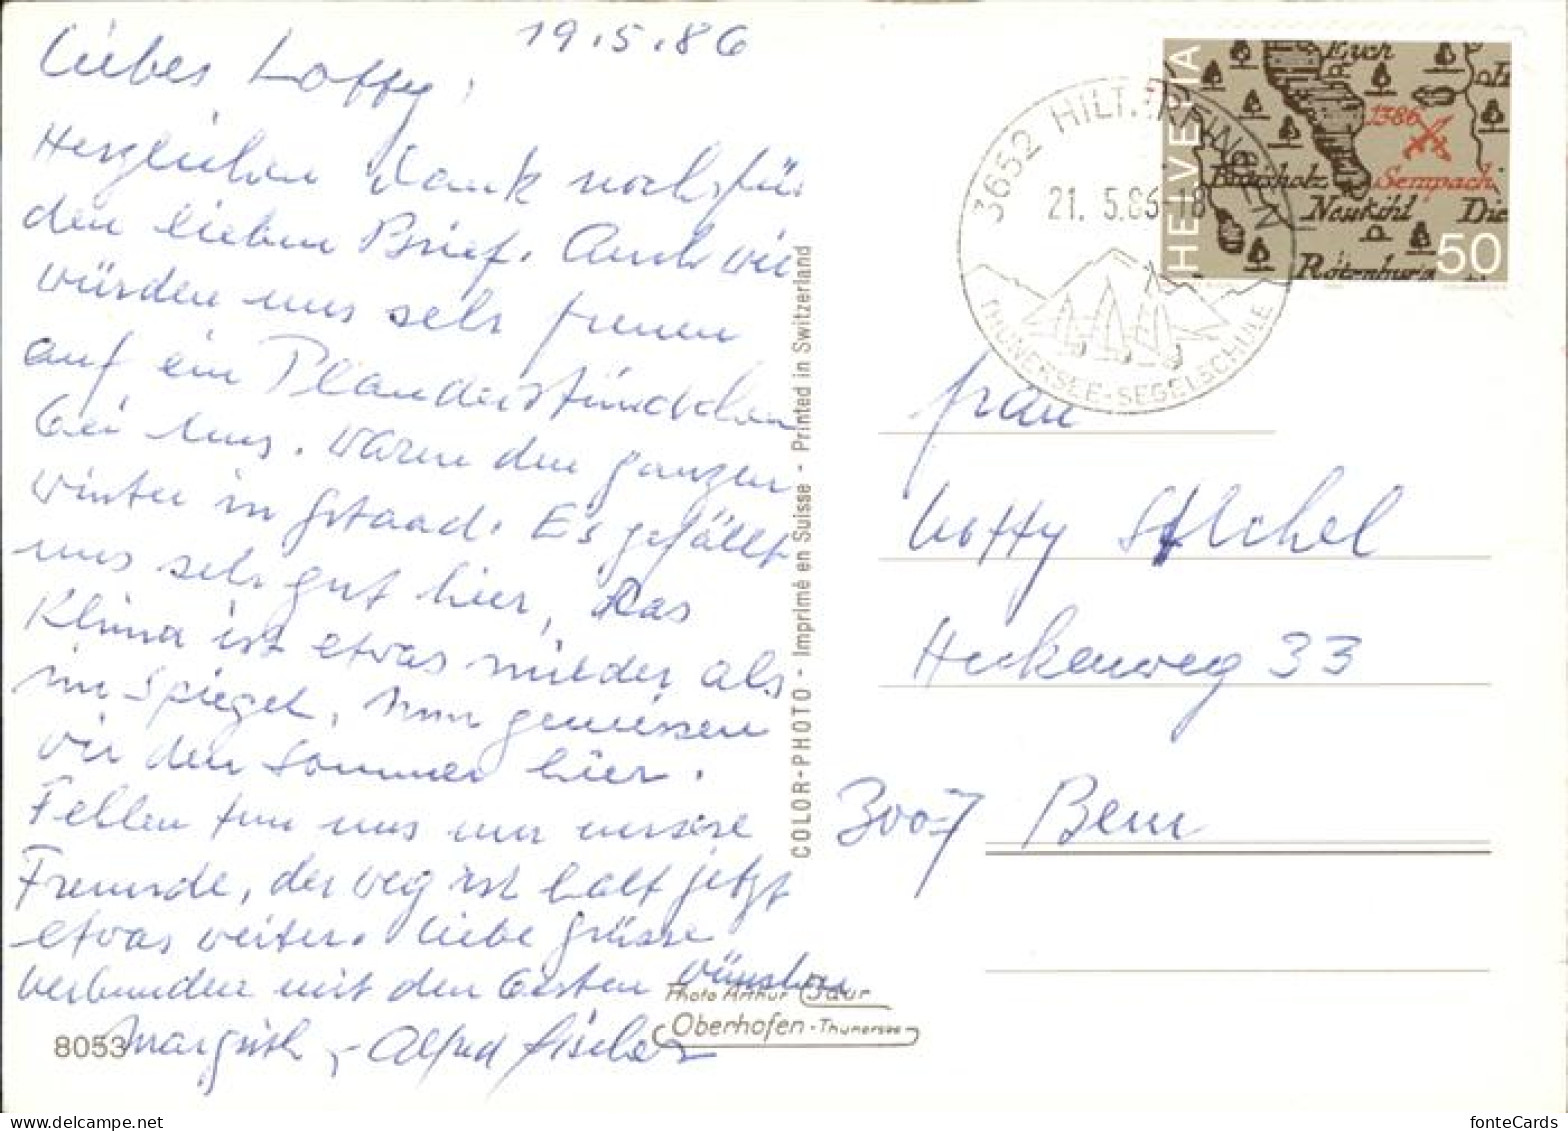 19.5.86
Liebes Lotty,
Herzlichen Dank nochs für
den lieben Brief. Auch wir
würden uns sehr freuen
auf ein Plauderstündchen
bei uns. Waren den ganzen
Winter in Gstaad. Es gefällt
uns sehr gut hier, das
Klima ist etwas milder als
im Spiegel, nun geniessen
wir den Sommer hier.
Fehlen tun uns nur unsere
Freunde, der Weg ist halt jetzt
etwas weiter. Liebe Grüsse
verbunden mit den besten Wünschen
Margrith - Alfred Fischer
8053
Photo Arthur Baur
Oberhofen - Thunersee
COLOR-PHOTO - Imprimé en Suisse - Printed in Switzerland
3652 HILTERFINGEN
21.5.86-18
THUNERSEE-SEGELSCHULE
HELVETIA
Eich
1386
Sempach
Buchholz
Neukihl
Die
Rotenburg
50
Frau
Lotty
Heckenweg 33
3007 Bern
fonteCards